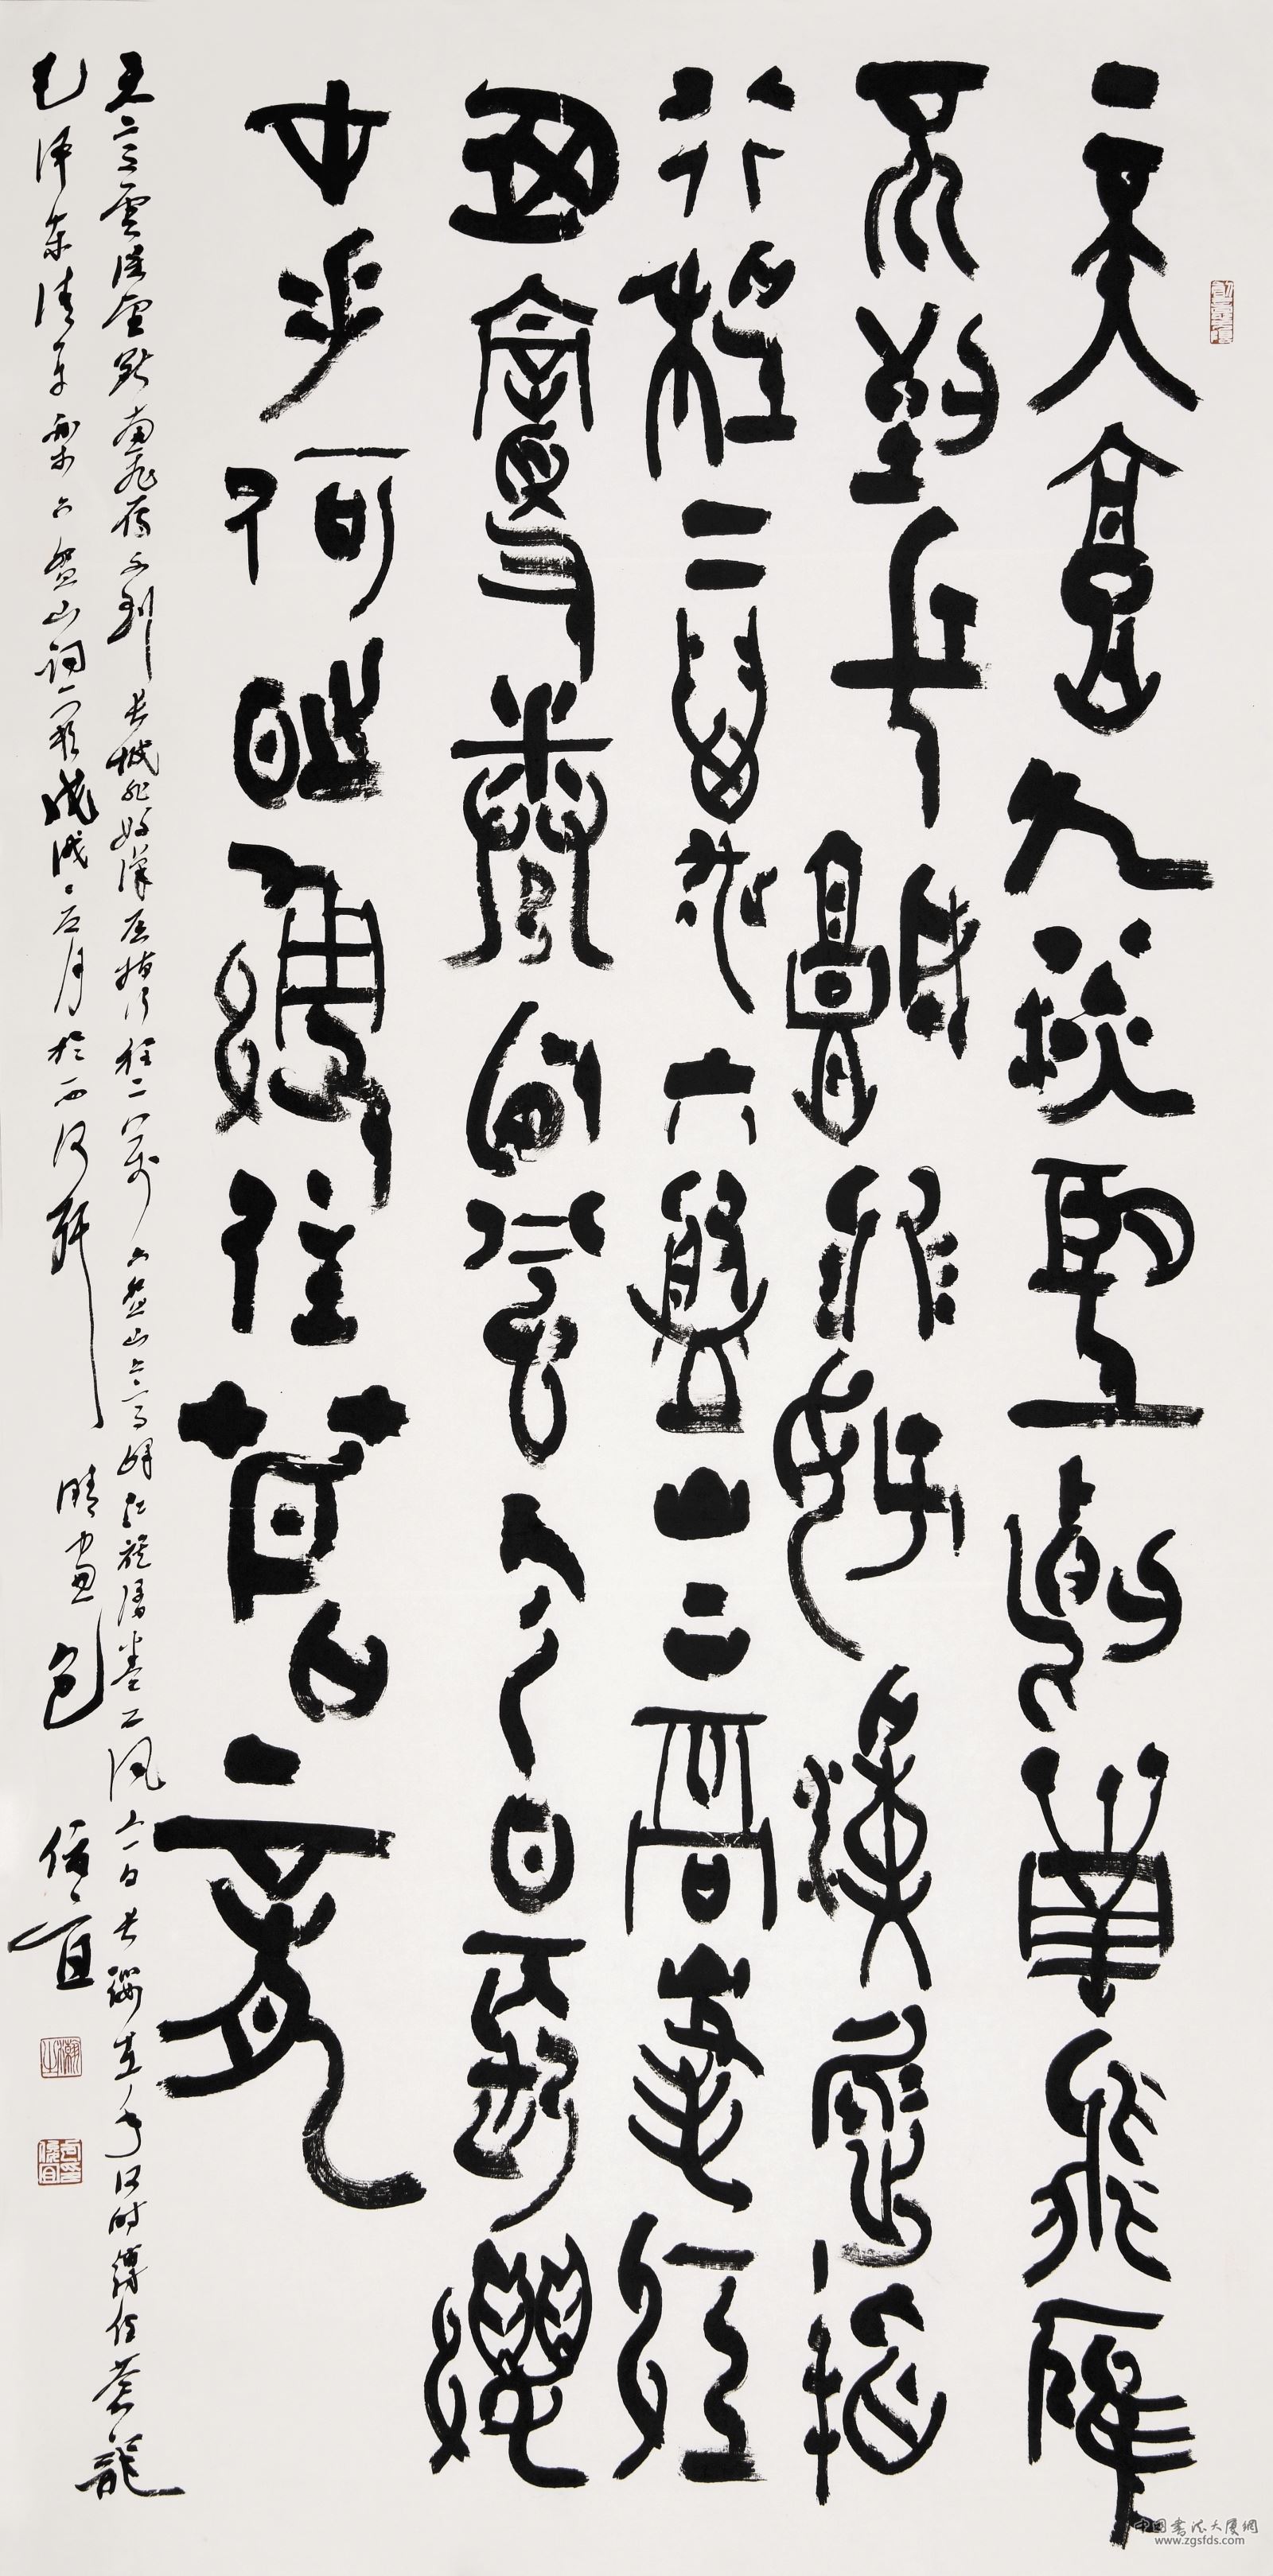 天高雲淡望斷南飛雁
不到長城非好漢屈指
行程二萬六盤山上高峰紅
旗漫卷西風今日長纓
在手何時縛住蒼龍
天高雲淡望斷南飛雁不到長城非好漢屈指行程二萬六盤山上高峰紅旗漫卷西風今日長纓在手何時縛住蒼龍
毛澤東清平樂六盤山詞一首戊戌五月於西河軒晴窗包俊宜
中國書法大廈網
www.zgsfds.com